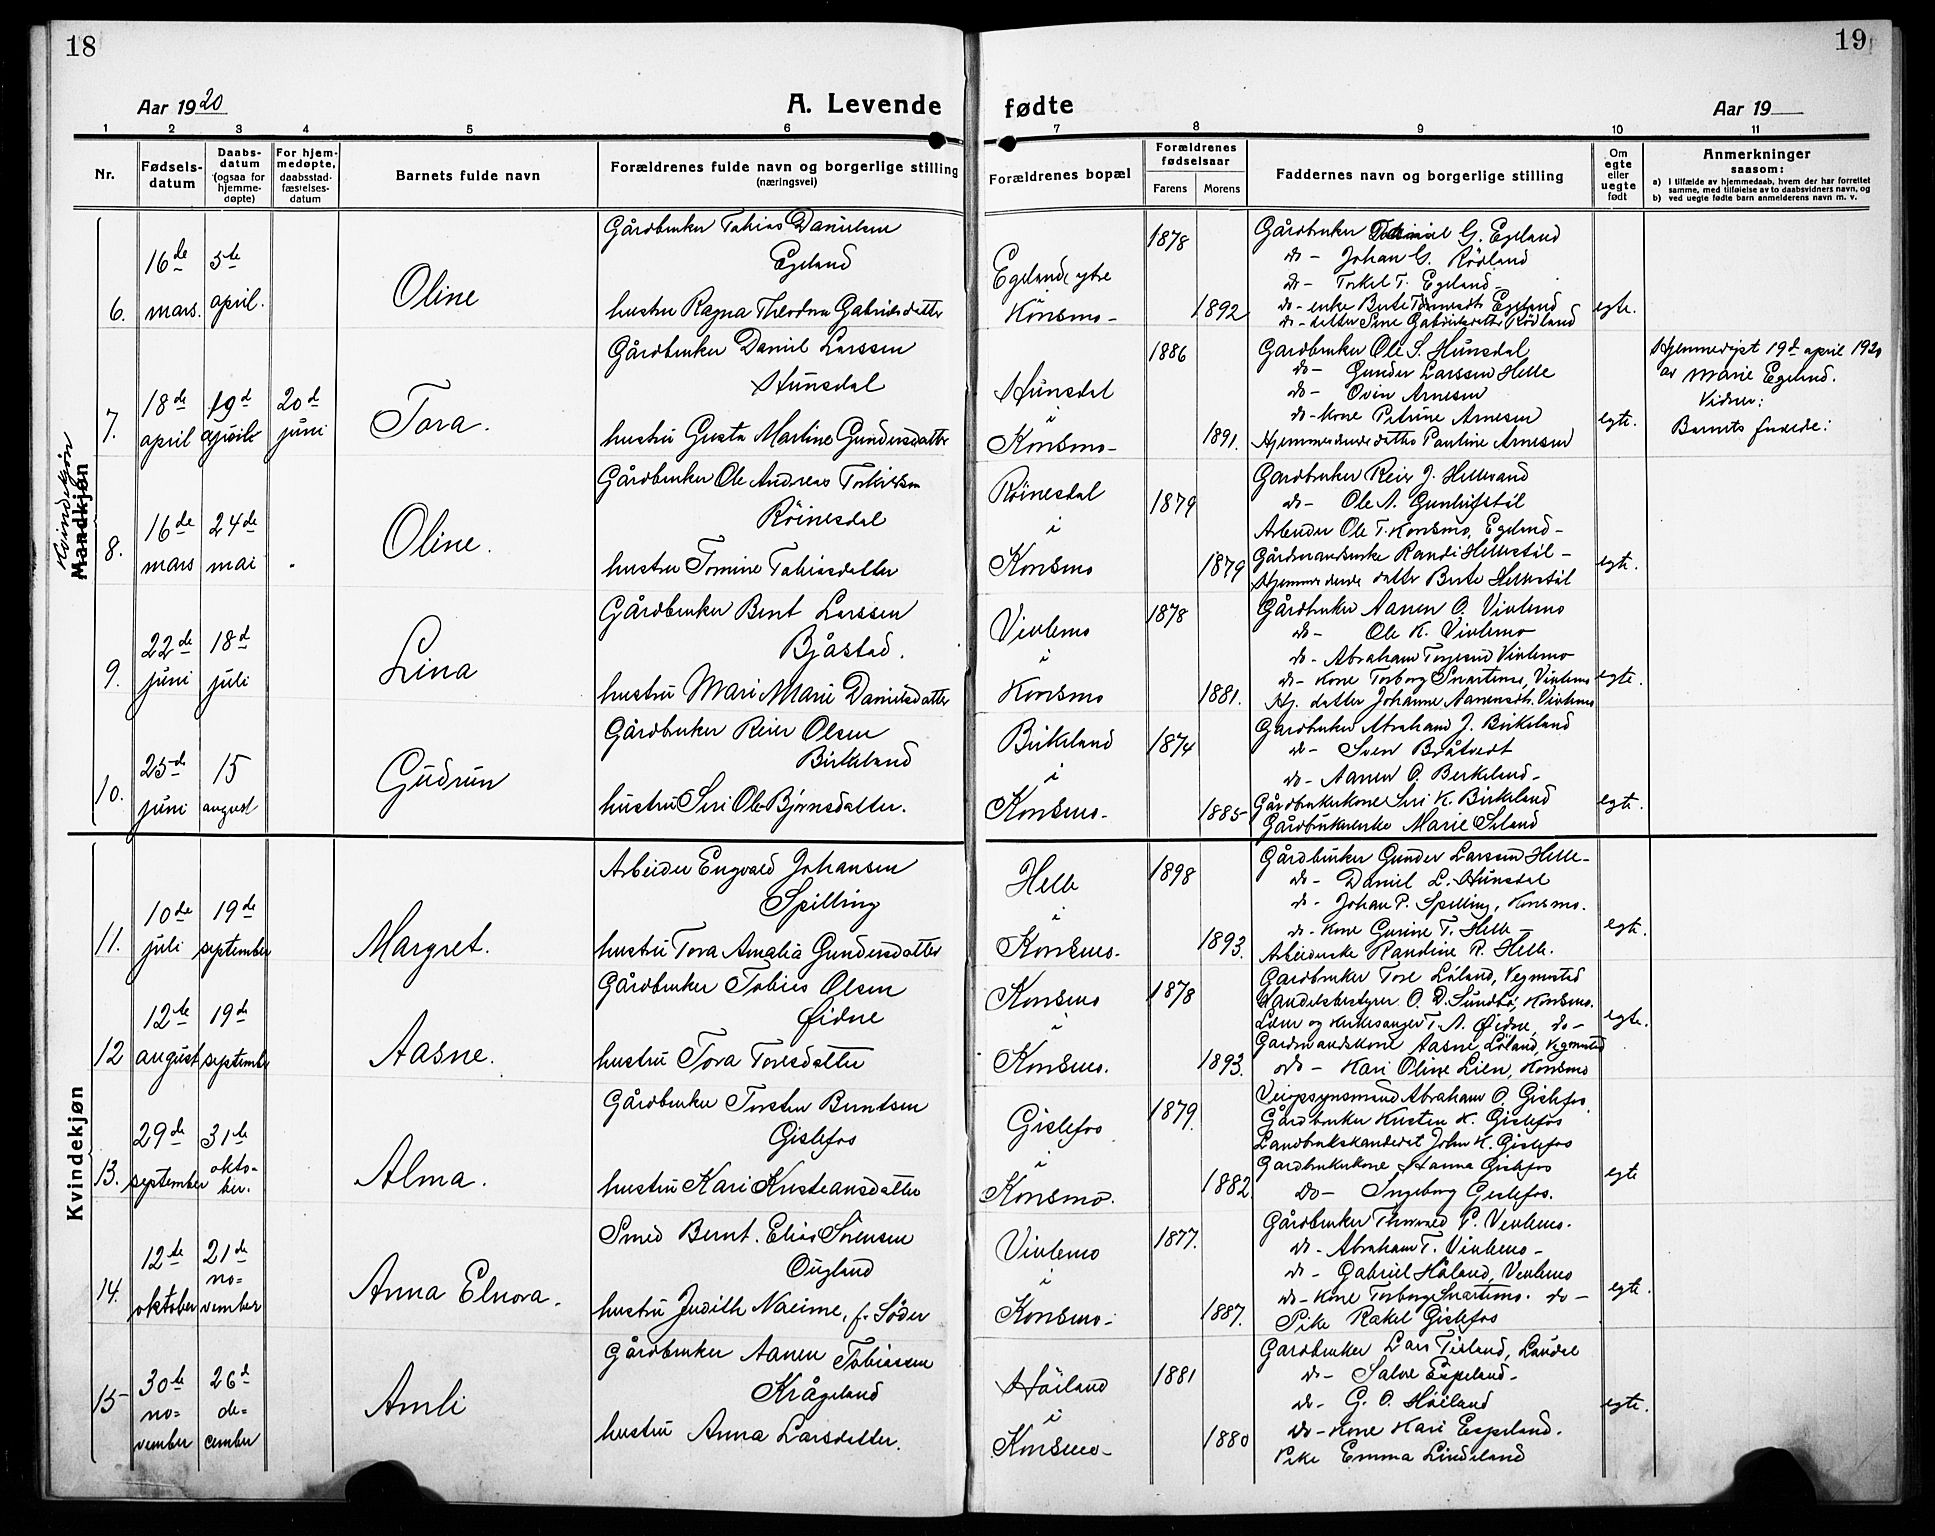 18
19
Aar 1920
A. Levende fødte
Aar 19
1 2 3 4 5 6 7 8 9 10 11
Nr.
Fødsels-
datum
Daabs-
datum
(ogsaa for
hjemme-
døpte)
For hjem-
medøpte,
daabsstad-
fæstelses-
datum
Barnets fulde navn
Forældrenes fulde navn og borgerlige stilling
(næringsvei)
Forældrenes bopæl
Forældrenes
fødselsaar
Farens Morens
Faddernes navn og borgerlige stilling
Om
egte
eller
uegte
født
Anmerkninger
saasom:
a) I tilfælde av hjemmedaab, hvem der har forrettet
samme, med tilføielse av to daabsvidners navn, og
b) ved uegte fødte barn anmelderens navn m. v.
Kvindekjøn
Mandkjøn
6.
16de
mars.
5te
april.
Oline
Gårdbruker Tobias Danielsen
Egeland
hustru Ragna Theodora Gabrielsdatter
Egeland ytre
Konsmo-
1878
1892
Gårdbruker G. Egeland
do- Johan G. Rödland
do- Torkel T. Egeland-
do- enke Berte Egeland
do- datter Sine Gabrielsdatter Rödland
egte.
7.
18de
april
19d
april
20d
juni
Tora.
Gårdbruker Daniel Larssen
Hunsdal
hustru Gusta Martine Gundersdatter
Hunsdal
i
Konsmo-
1886
1891.
Gardbruker Ole S. Hunsdal
do- Gunder Larssen Helle
do- Oven Arnesen
do- kone Petrine Arnesen
Hjemmeværende datter Pauline Arnesen
egte.
Hjemmedøpt 19d april 1920
av Marie Egeland.
Vidner:
Barnets forældre:
8.
16de
mars
24de
mai
Oline.
Gårdbruker Ole Andreas Torkelsen
Röinesdal
hustru Tomine Tobiasdatter
Röinesdal
i
Konsmo
1879
1879
Gardbruker Reier J. Hellevand
do- Ole A. Gunleifstöl
Arbeider Ole T. Konsmo, Egeland-
Gårdmandsenke Randi Hellestöl-
Hjemmeværende datter Berte Hellestöl
egte.
9.
22de
juni
18d
juli
Lina
Gårdbruker Bent Larssen
Bjåstad.
hustru Mari Marie Danielsdatter
Vivlemo
i
Konsmo
1878
1881.
Gårdbruker Aanen O. Vivlemo
do- Ole K. Vivlemo
do- Abraham Torjesen Vivlemo
do- kone Torborg Svartemo, Vivlemo
Hj. datter Johanne Aanensdtr. Vivlemo
egte.
10.
25de
juni
15
august
Gudrun
Gårdbruker Reier Olsen
Birkeland
hustru Siri Ole-Bjørnsdatter.
Birkeland
i
Konsmo-
1874
1885
Gardbruker Abraham J. Birkeland
do- Sven Bråtvedt
do- Aanen O. Berkeland-
Gårdbrukerkone Siri K. Birkeland
Gårdbrukerenke Marie Seland
egte.
Kvindekjøn
11.
10de
juli
19de
september
Margret.
Arbeider Engvald Johansen
Spilling
hustru Tora Amalia Gundersdatter
Helle
i
Konsmo-
1898
1893.
Gårdbruker Gunder Larssen Helle-
do- Daniel L. Hunsdal
do- Johan P. Spilling, Konsmo.
do- kone Gurine T. Helle-
Arbeiderske Randine R. Helle.
egte.
12
12te
august
19de
september
Aasne.
Gårdbruker Tobias Olsen
Øidne
hustru Tora Toresdatter
Konsmo
i
Konsmo.
1878
1893.
Gardbruker Tore Löland, Vegmostad
Handelsbestyrer O. D. Sundbö, Konsmo.
Lærer og kirkesanger T. A. Øidne, do-
Gardmandskone Aasne Löland, Vegmostad
do- Kari Oline Lien, Konsmo
egte.
13.
29de
september
31te
okto-
ber.
Alma.
Gårdbruker Torsten Berntsen
Gislefos
hustru Kari Kristeansdatter
Gislefos
i
Konsmo.
1879.
1882
Veiopsynsmand Abraham O. Gislefos.
Gårdbruker Kristen K. Gislefos
Landbrukskandidat John K. Gislefos
Gardbrukerkone Hanna Gislefos
do- Ingeborg Gislefos.
egte
14.
12te
oktober
21de
no=
vember
Anna Elnora.
Smed Bernt Elias Sörensen
Ougland
hustru Judith Naeime, f. Söder
Vivlemo
i
Konsmo-
1877.
1887.
Gårdbruker Thorvald P. Vivlemo.
do- Abraham T. Vivlemo-
do- Gabriel Håland, Vivlemo
do- kone Torborg Svartemo. do-
Pike Rakel Gislefos
egte.
15
30te
no=
vember
26d
de=
cember
Amli
Gårdbruker Aanen Tobiassen
Krågeland
hustru Anna Larsdatter.
Höiland
i
Konsmo-
1881
1880
Gardbruker Lars Tisland, Laudal
do- Salve Espeland-
do- G. O. Höiland
do- kone Kari Espeland.
Pike Emma Lindeland
egte.